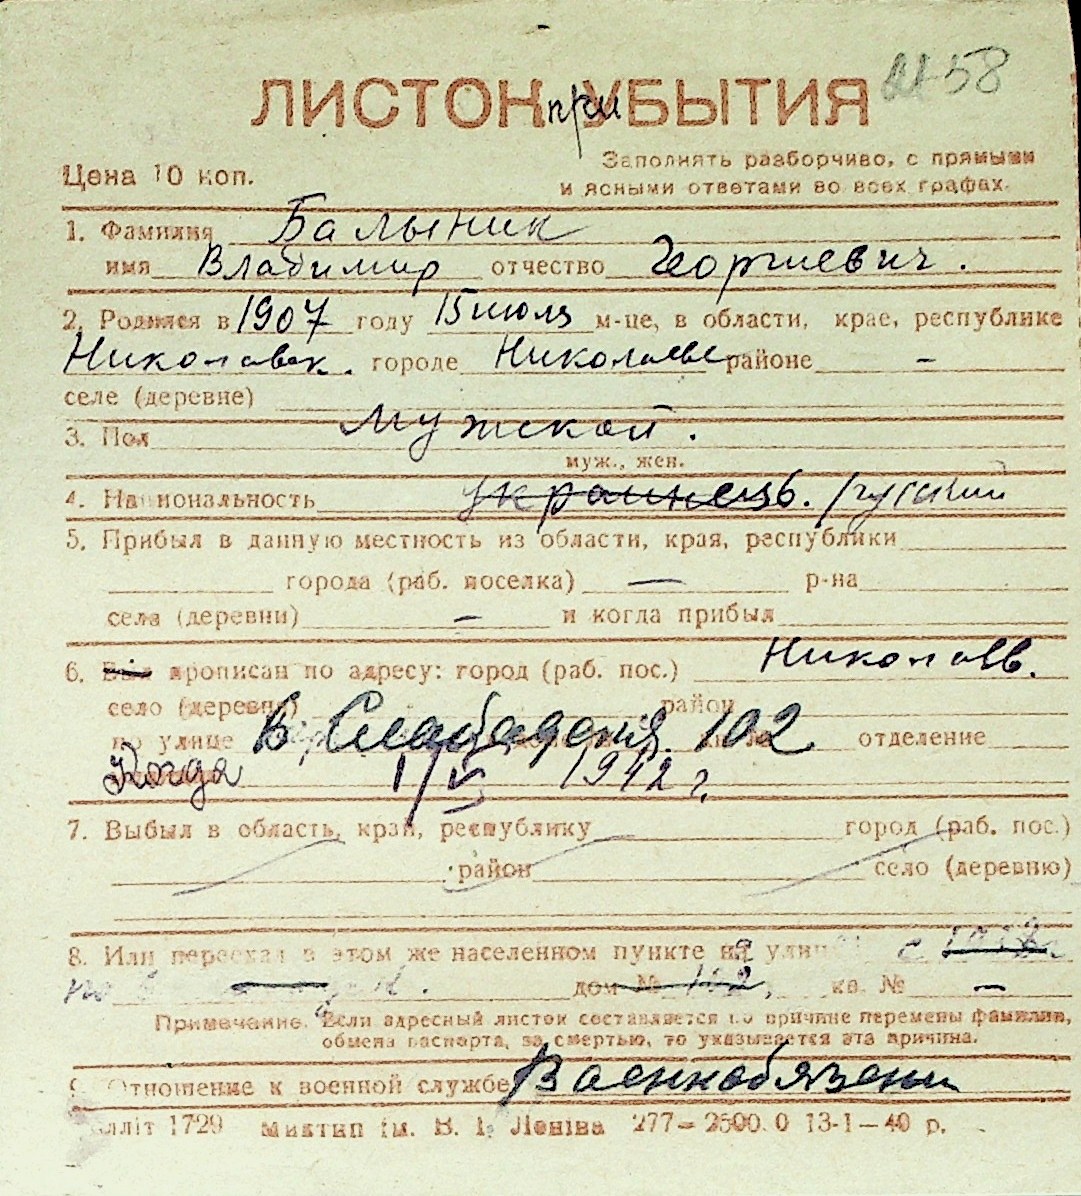 58
ЛИСТОК при УБЫТИЯ
Цена 10 коп.
Заполнять разборчиво, с прямыми
и ясными ответами во всех графах.
1. Фамилия Балыник
имя Владимир отчество Георгиевич.
2. Родился в 1907 году 15 июля м-це, в области, крае, республике
Николаевск. городе Николаеве районе —
селе (деревне)
3. Пол Мужской.
муж., жен.
4. Национальность украинець. русский
5. Прибыл в данную местность из области, края, республики
города (раб. поселка) — р-на
села (деревни) — и когда прибыл
6. Был прописан по адресу: город (раб. пос.) Николаев.
село (деревня) район
по улице В Слабадская 102 отделение
Когда 1/VI 1942 г.
7. Выбыл в область, край, республику город (раб. пос.)
район село (деревню)
8. Или переехал в этом же населенном пункте на улицу с
по дом № 102, кв. № —
Примечание. Если адресный листок составляется по причине перемены фамилии,
обмена паспорта, за смертью, то указывается эта причина.
9. Отношение к военной службе Военнобязени
лліт 1729 Миктип ім. В. І. Леніна 277—2500.0 13-1—40 р.